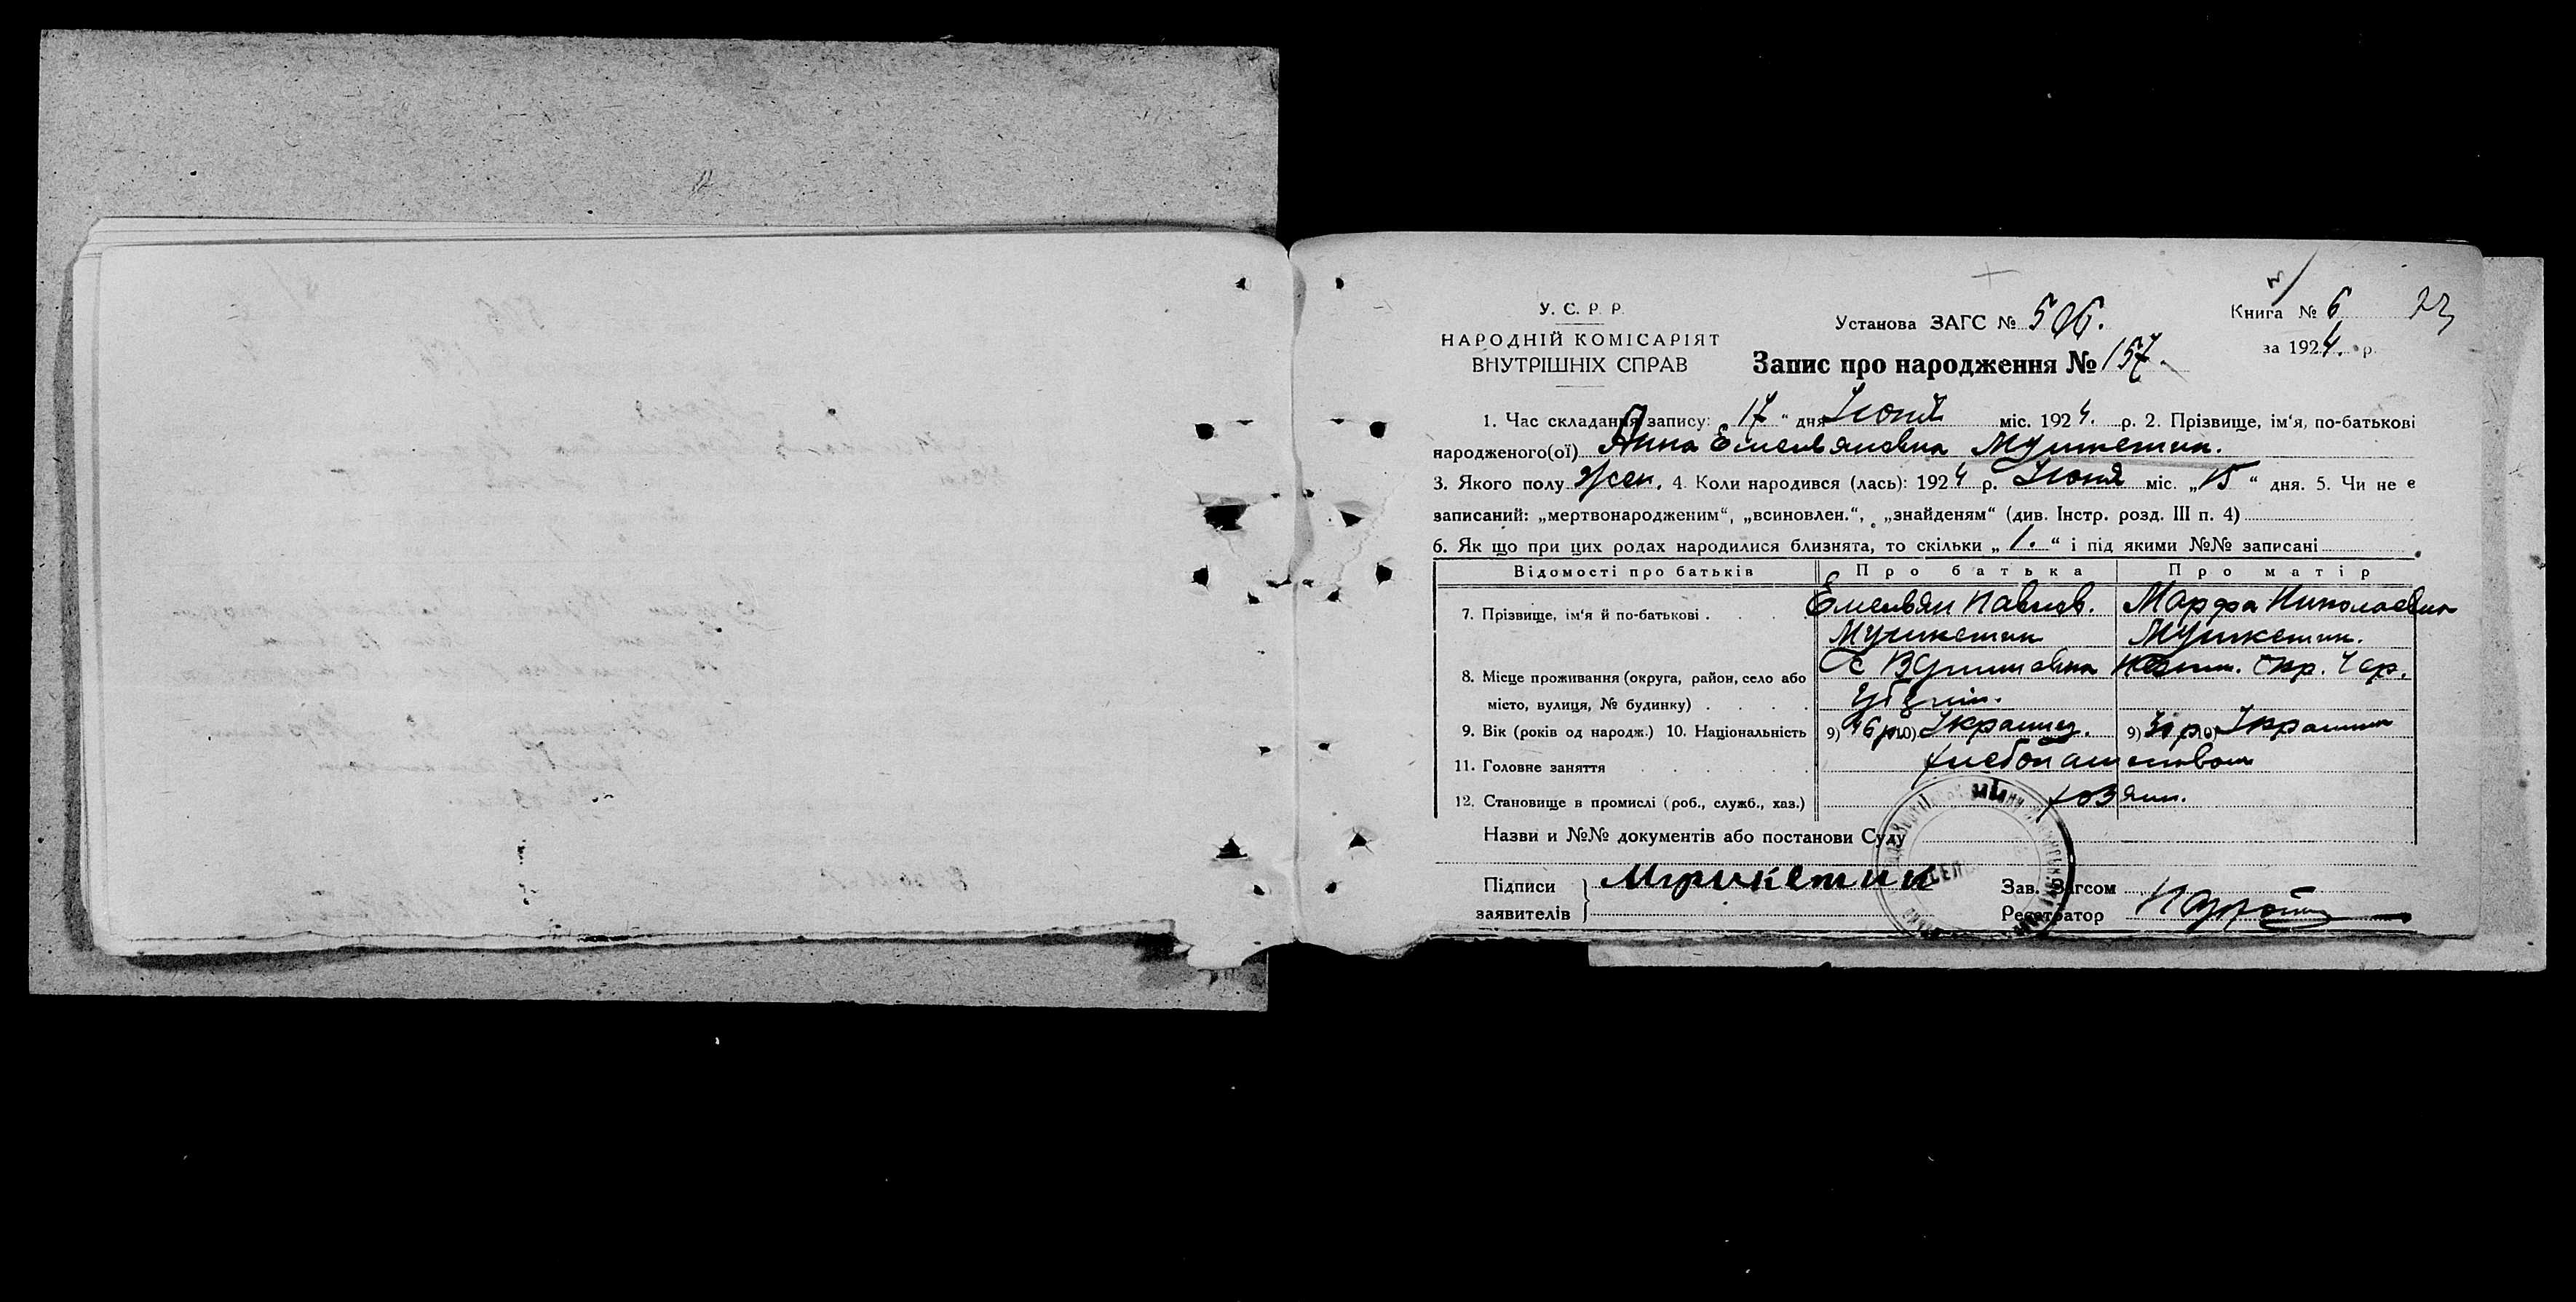 У. С. Р. Р.
НАРОДНІЙ КОМІСАРІЯТ
ВНУТРІШНІХ СПРАВ
Установа ЗАГС № 506.
Книга № 6
23
за 1924. р.
Запис про народження № 157.
1. Час складання запису: 17 " дня Июня міс. 1924. р. 2. Прізвище, ім'я, по-батькові
народженого(ої) Анна Емельяновна Мушкетик.
3. Якого полу жен. 4. Коли народився (лась): 1924 р. Июня міс. „15 " дня. 5. Чи не є
записаний: „мертвонародженим", „всиновлен.", „знайденям" (див. Інстр. розд. III п. 4)
6. Як що при цих родах народилися близнята, то скільки „ 1. " і під якими №№ записані
Відомості про батьків Про батька Про матір
7. Прізвище, ім'я й по-батькові . Емельян Павлов. Марфа Николаевна
Мушкетик Мушкетик.
8. Місце проживання (округа, район, село або с Окр. Чер.
місто, вулиця, № будинку) губерн.
9. Вік (років од народж.) 10. Національність 9) 46 р. 10) Украинец. 9) 30 р. 10) Украин
11. Головне заняття хлебопашеством
12. Становище в промислі (роб., служб., хаз.) хозяин.
Назви и №№ документів або постанови Суду
Підписи Мушкетик Зав. Загсом
заявителів Реєстратор